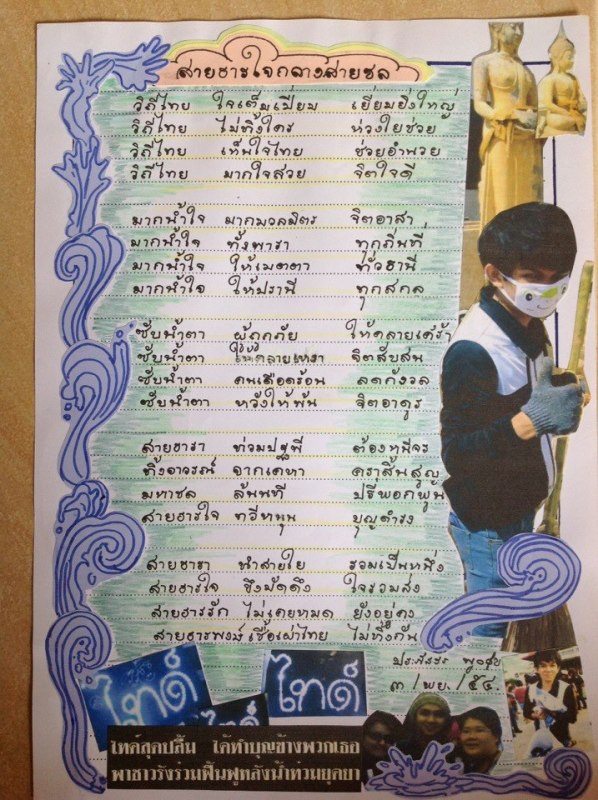 สายธารใจกลางสายชล
วิถีไทย ใจเต็มเปี่ยม เยี่ยมยิ่งใหญ่
วิถีไทย ไม่ทิ้งใคร ห่วงใยช่วย
วิถีไทย เห็นใจไทย ช่วยอำนวย
วิถีไทย มากใจสวย จิตใจดี
มากน้ำใจ มากมวลมิตร จิตอาสา
มากน้ำใจ ทั้งพารา ทุกถิ่นที่
มากน้ำใจ ให้เมตตา ทั่วธานี
มากน้ำใจ ให้ปรานี ทุกสกล
ซับน้ำตา ผู้ตกภัย ให้คลายเศร้า
ซับน้ำตา ให้คลายเหงา จิตสับสน
ซับน้ำตา คนเดือดร้อน ลดกังวล
ซับน้ำตา หวังให้พ้น จิตอาดูร
สายธารา ท่วมปฐพี ต้องหนีจร
ทิ้งอาวรณ์ จากเคหา คราสิ้นสูญ
มหาชล ล้นนที ปรี่พอกพูน
สายธารใจ ทวีหนุน บุญดำรง
สายธารา นำสายใย รวมเป็นหนึ่ง
สายธารใจ ซึ่งมัดตึง ใจรวมส่ง
สายธารรัก ไม่เคยหมด ยังอยู่คง
สายธารพงษ์ เชื้อเผ่าไทย ไม่ทิ้งกัน
๓ / พย. / ๕๔.
ไทด์
ไทด์
ไทด์
ไทด์สุดปลื้ม ได้ทำบุญข้างพวกเธอ
พาชาวรังร่วมฟื้นฟูหลังน้ำท่วมอยุธยา